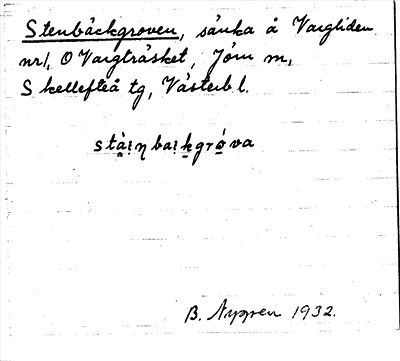 Stenbäckgroven, sänka å Vargliden
nr1, O Vargträsket, Jörn sn,
Skellefteå tg, Västerb l.
stàiŋbaiḵgrǿva
B. Nygren 1932.